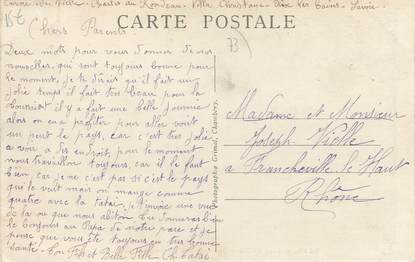 CARTE POSTALE
Chers Parents
Deux mots pour vous donner de nos
nouvelles, qui sont toujours bonne pour
le moment, je te dirais qu'il fait un
jolie temps il fait tres beau pour la
il y a fait une belle journée
alors on en a profiter pour aller voir
un peut le pays, car c'est très jolie
a voir, a des endroit, pour le moment
nous travaillon toujours, car il le faut
bien, car je ne c'est pas si c'est le pays
qui le veut mais on mange comme
quatre avec la je t'invoie une vue
de la ou que nous abiton. Tu donneras bien
le bonjour au Papa de notre pare et je
pense que vous ête toujours en très bonne
santé. Ton Fils et Belle Fille
Photographe Grimal, Chambéry.
Madame et Monsieur
Joseph Vielle
a Francheville le Haut
Rhône